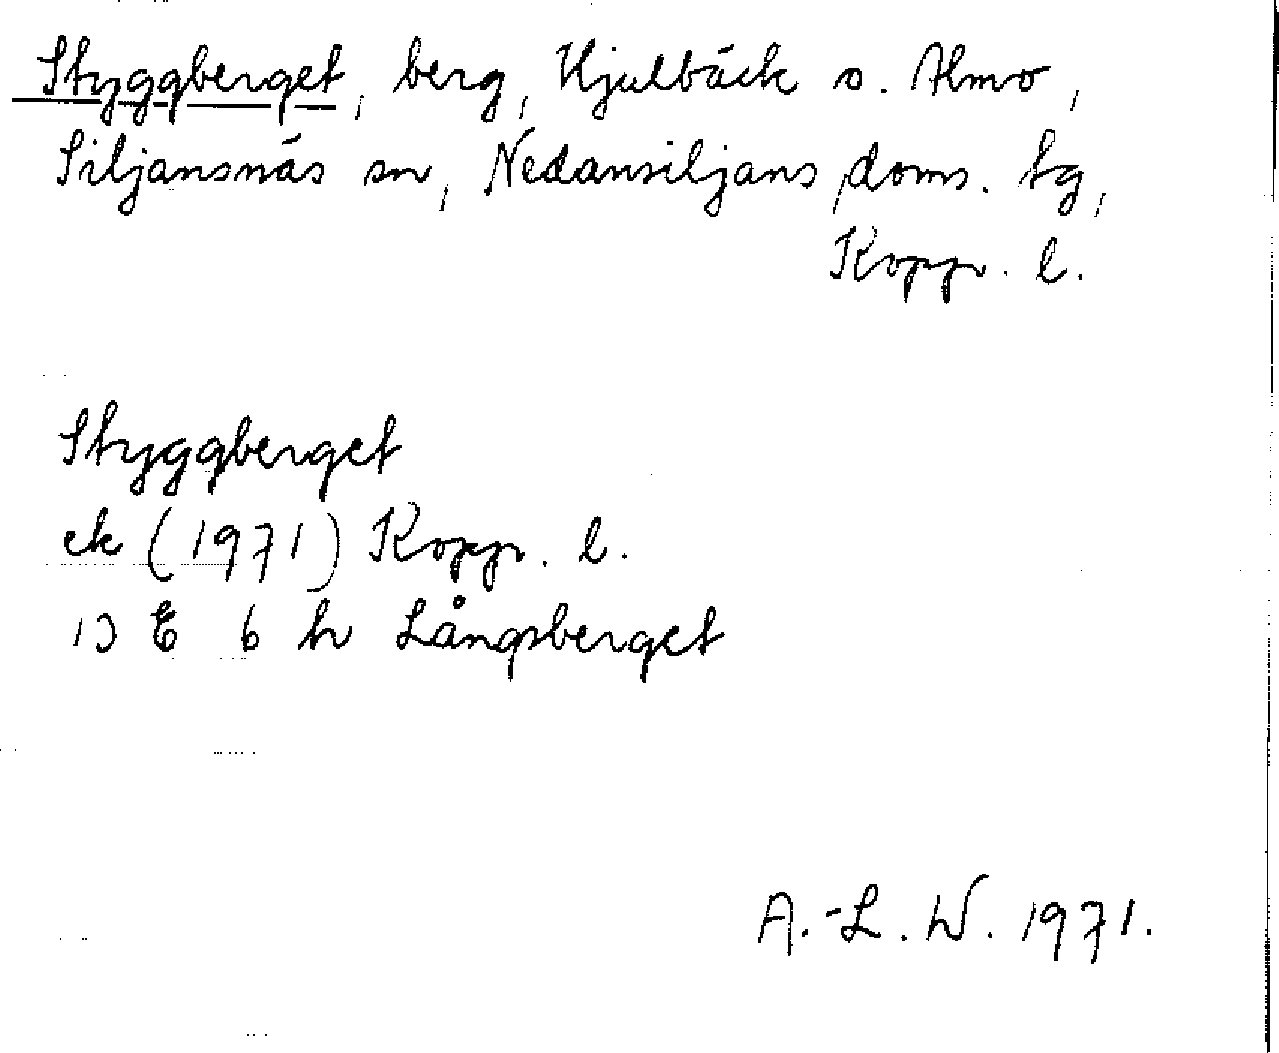 Styggberget, berg, Hjulbäck o. Almo,
Siljansnäs sn, Nedansiljans doms. tg,
Kopp. l.
Styggberget
ek (1971) Kopp. l.
13 E 6 h Långsberget
A.-L. W. 1971.